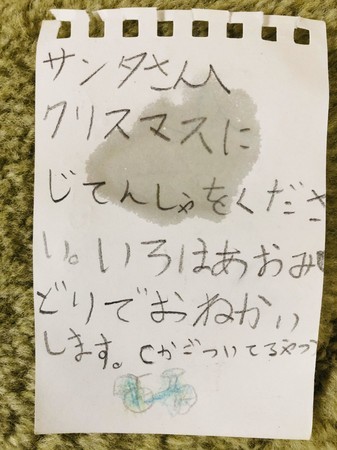 サンタさんへ
クリスマスに
じてんしゃをくださ
い。いろはあおみ
どりでおねがい
します。Cかごついてるやつ